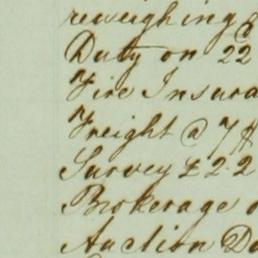 reweighing &
Duty on 22
Fire Insura
Freight @ 7
Survey £2.2
Brokerage o
Auction Du